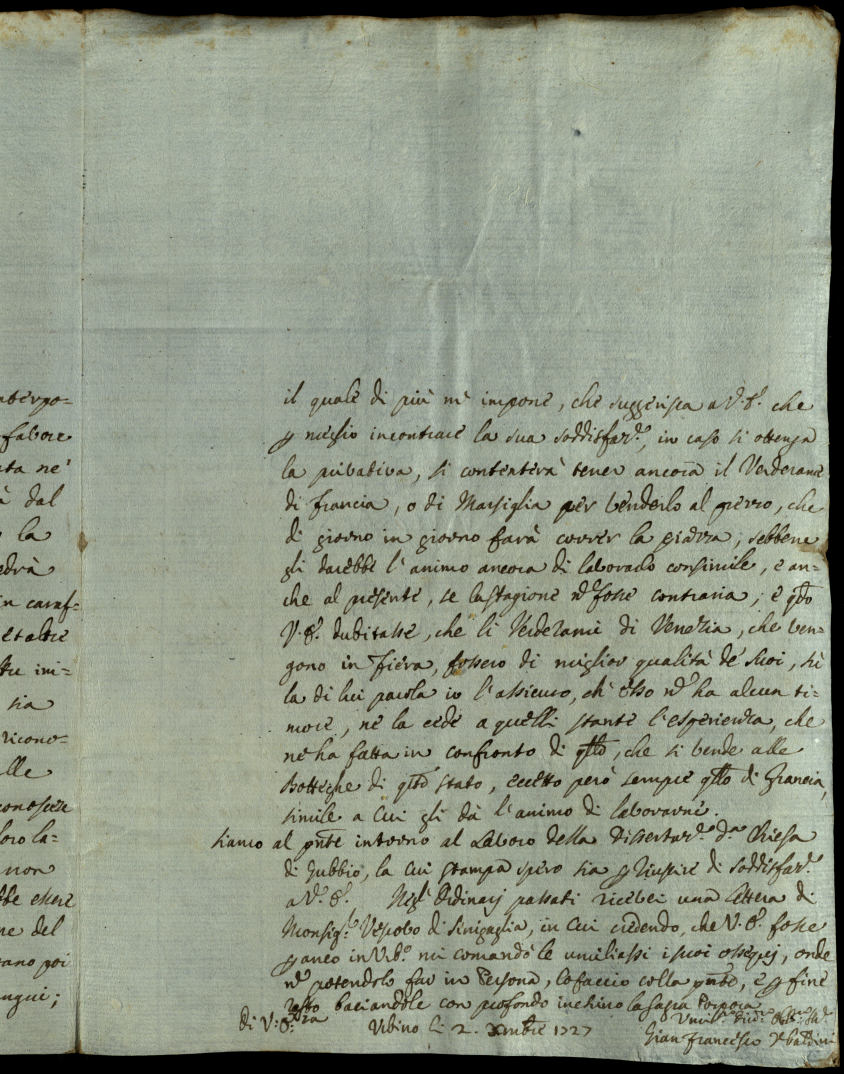 nterpo=
favore
ta ne'
à dal
la
edrà
in caraf=
etaltre
tre ini=
sia
ricono=
lle
conoscere
loro la=
non
bbe essere
ne del
tano poi
ingui;
il quale di più m' impone, che suggerisca a V. E.ª che
p meglio incontrare la sua soddisfaz.ᵉ, in caso si ottenga
la privativa, si contenterà tener ancora il Verderame
di Francia, o di Marsiglia per venderlo al prezzo, che
di giorno in giorno farà correr la piazza; sebbene
gli darebbe l'animo ancora di lavorarlo consimile, e an=
che al presente, se la stagione nõ fosse contraria; e qdo
V. E.ª dubitasse, che li Verderami di Venezia, che ven=
gono in Fiera, fossero di miglior qualità de' suoi, sù
la di lui parola io l'assicuro, ch' esso nõ ha alcun ti=
more, nè la cede a quelli stante l'esperienza, che
ne ha fatta in confronto di qllo, che si vende alle
Botteghe di qto stato, eccetto però sempre qllo di Francia,
simile a cui gli dà l'animo di lavorarne.
siamo al pnte intorno al Lavoro della Dissertaz.ᵉ d.ª Chiesa
di Gubbio, la cui stampa spero sia p riuscire di soddisfaz.ᵉ
a V.ª E.ª Negl' Ordinarj passati ricevei una lettera di
Monsig.ʳ Vescovo di Sinigaglia, in cui credendo, che V. E.ª fosse
p anco in Urb.º mi comandò le umiliassi i suoi ossequj, onde
nõ potendolo far in Persona, lo faccio colla pnte, e p fine
resto baciandole con profondo inchino la Sagra Porpora
di V: E:ª Urbino li 2. Xmbre 1727
Umil.ᵐᵒ Div.ᵐᵒ Obb.ᵐᵒ Ser.ʳᵉ
Gian Francesco Ubaldini